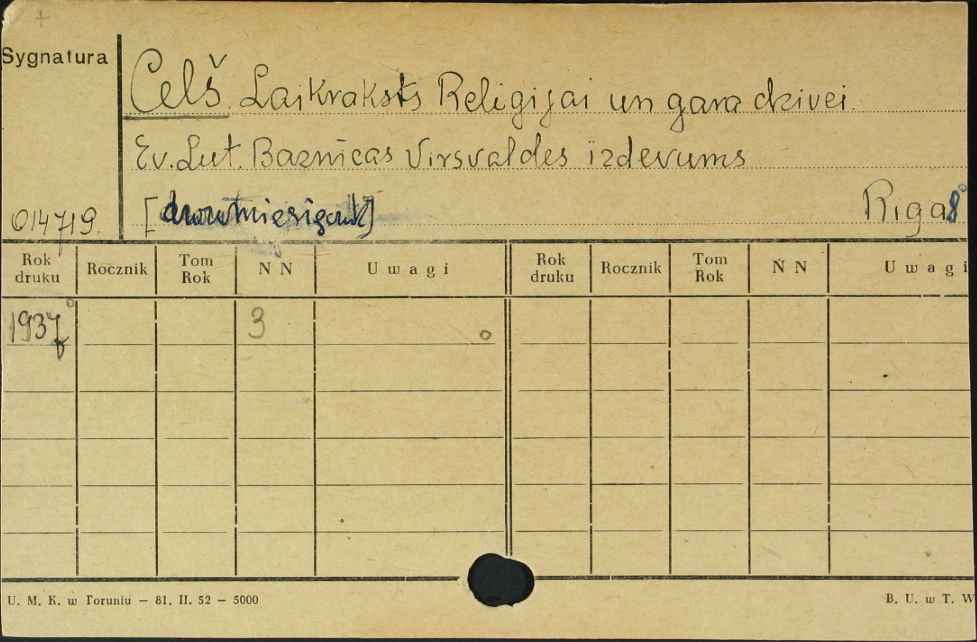 Sygnatura
Celš. Laikraksts Religijai un gara dzivei.
Ev. Lut. Baznicas Virsvaldes izdevums
014719. [dwumiesięcznik] Riga 8°
Rok druku Rocznik Tom Rok N N Uwagi Rok druku Rocznik Tom Rok N N Uwagi
1937 3
U. M. K. w Toruniu — 81. II. 52 — 5000 B. U. w T. W